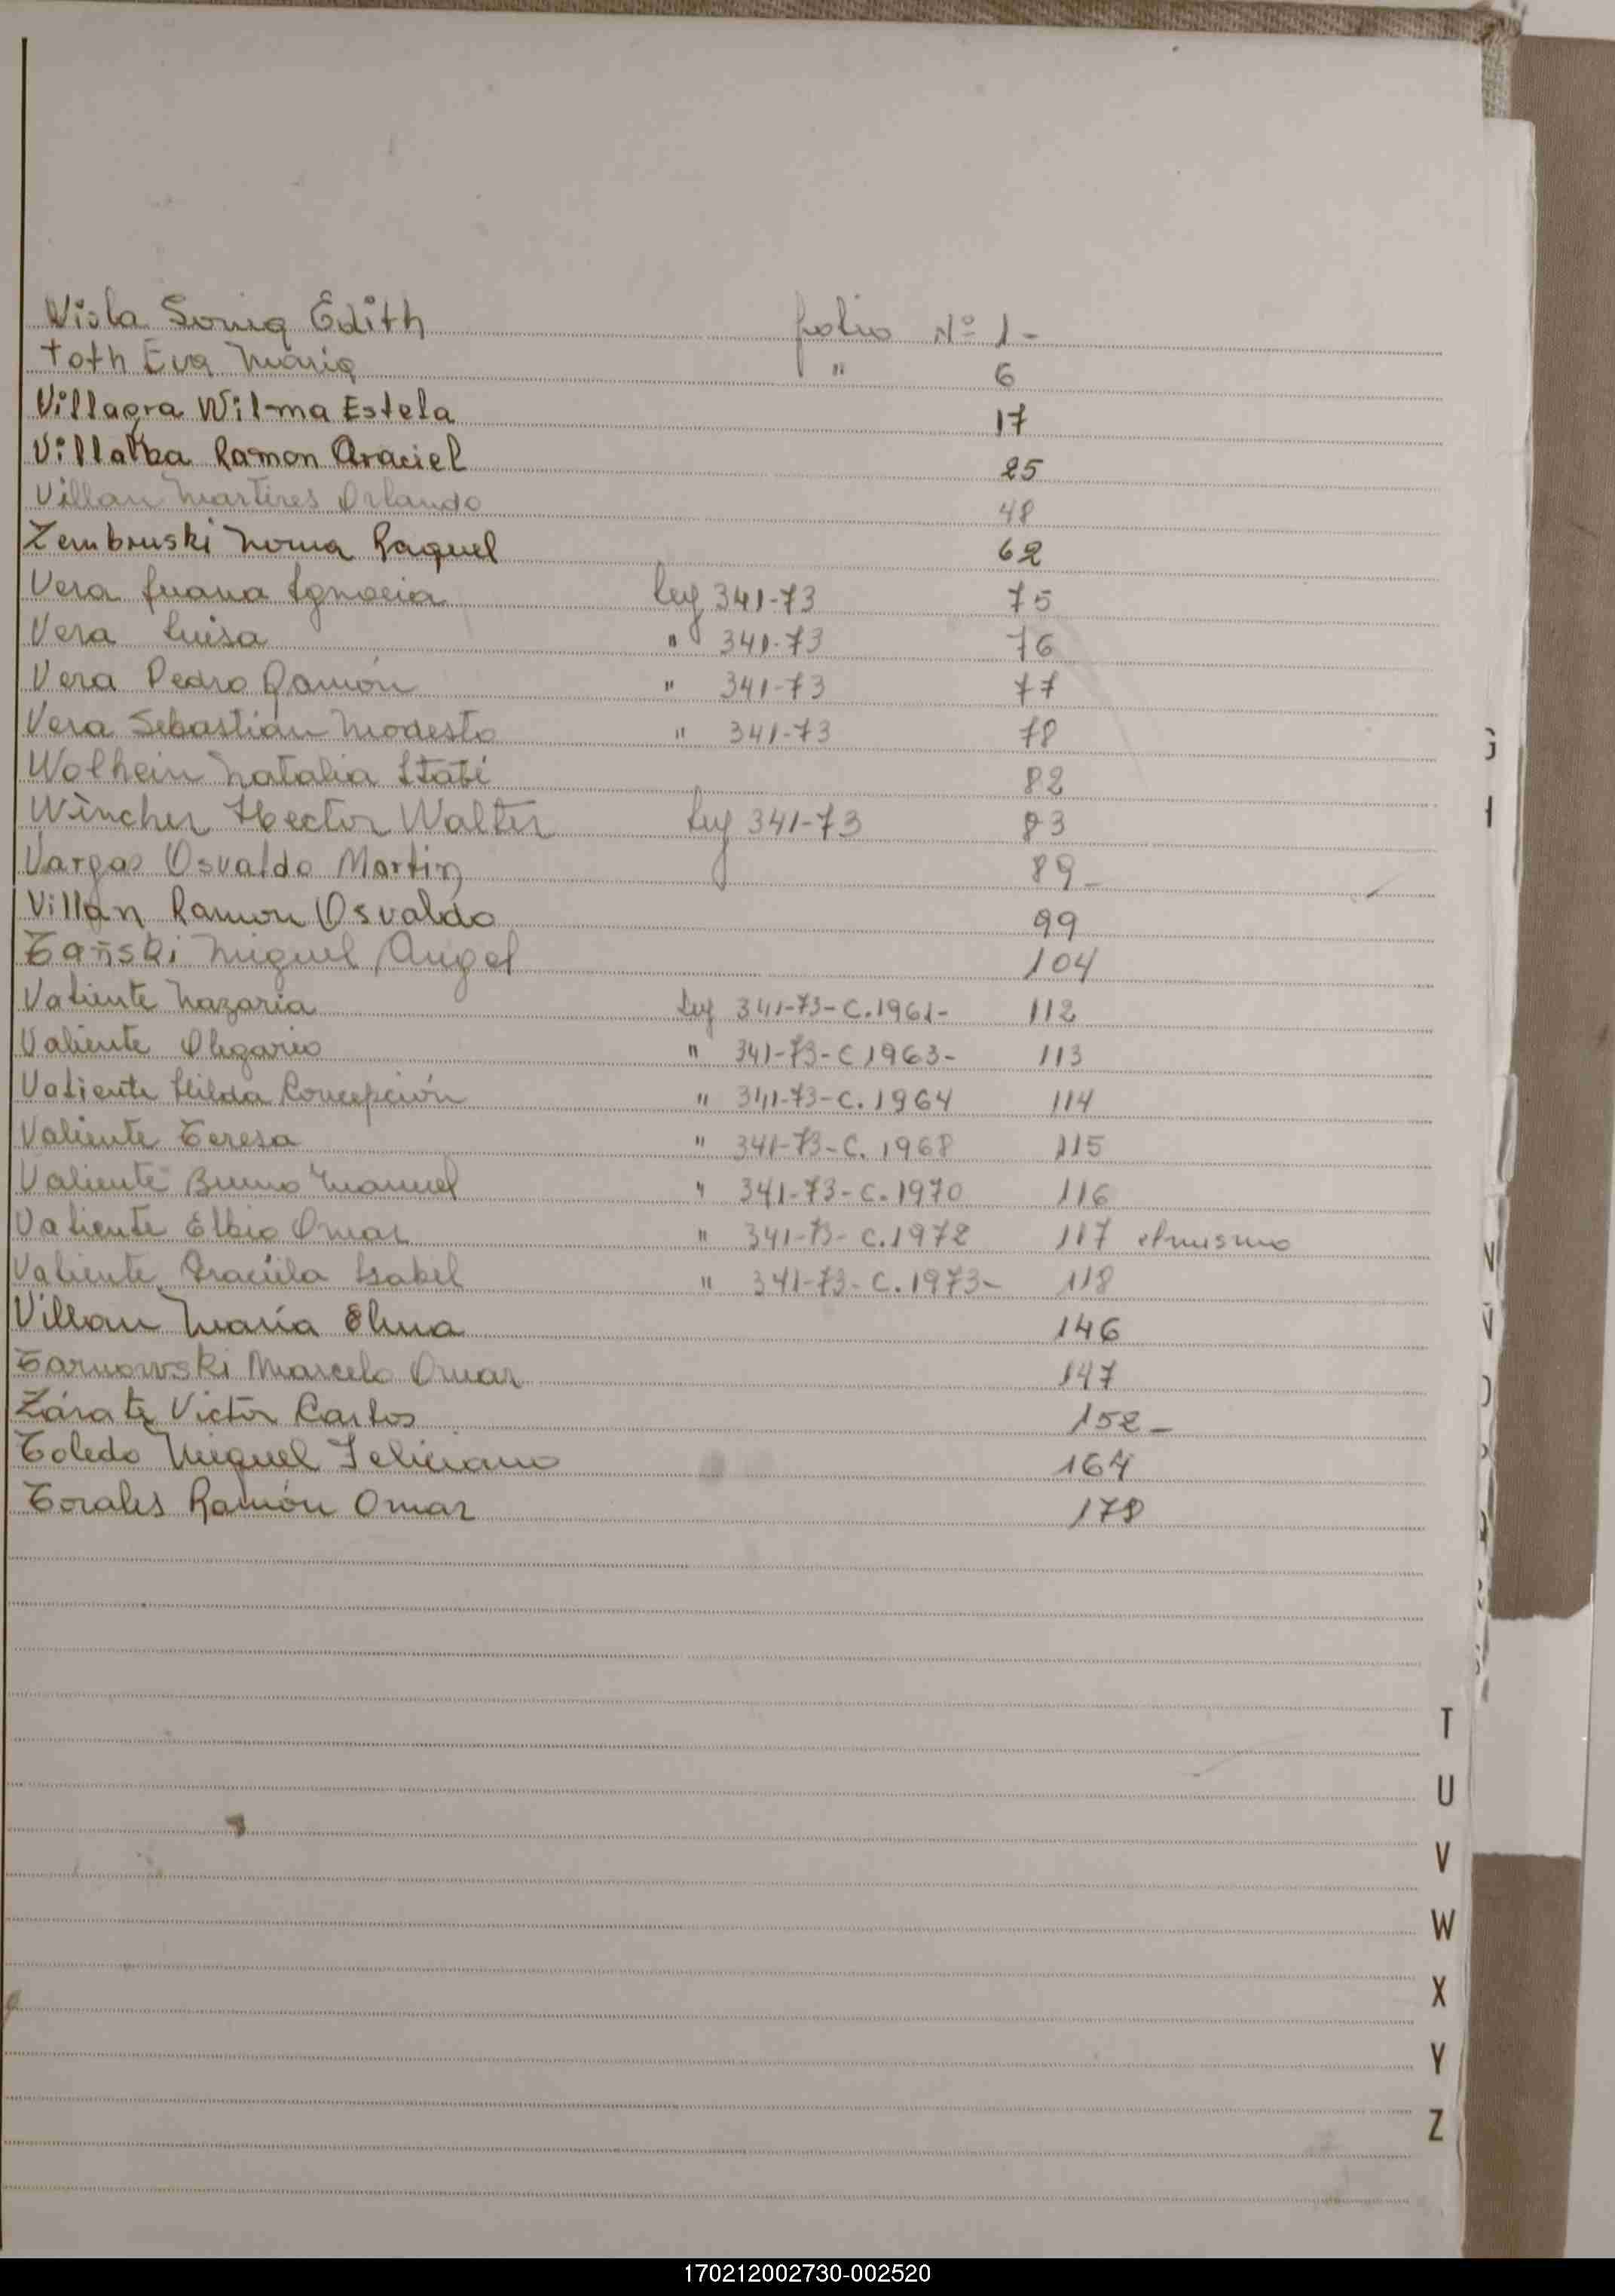 Wisla Sonia Edith folio Nº 1-
Toth Eva Maria " 6
Villagra Wilma Estela 17
Villalba Ramon Araciel 25
Villan Martires Orlando 48
Zembruski Norma Raquel 62
Vera Juana Ignacia Ley 341-73 75
Vera Luisa " 341-73 76
Vera Pedro Ramón " 341-73 77
Vera Sebastián Modesto " 341-73 78
Wolhein Natalia Itatí 82
Wincher Hector Walter Ley 341-73 83
Vargas Osvaldo Martin 89-
Villan Ramon Osvaldo 99
Tañski Miguel Angel 104
Valiente Nazaria Ley 341-73-C.1961- 112
Valiente Olegario " 341-73-C 1963- 113
Valiente Hilda Concepción " 341-73-C. 1964 114
Valiente Teresa " 341-73-C. 1968 115
Valiente Bruno Manuel " 341-73-C. 1970 116
Valiente Elbio Omar " 341-73- C.1972 117
Valiente Isabel " 341-73-C.1973- 118
Villan María Elma 146
Tarnowski Marcelo Omar 147
Zárate Victor Carlos 152-
Toledo Miguel Feliciano 164
Torales Ramón Omar 178
T
U
V
W
X
Y
Z
170212002730-002520